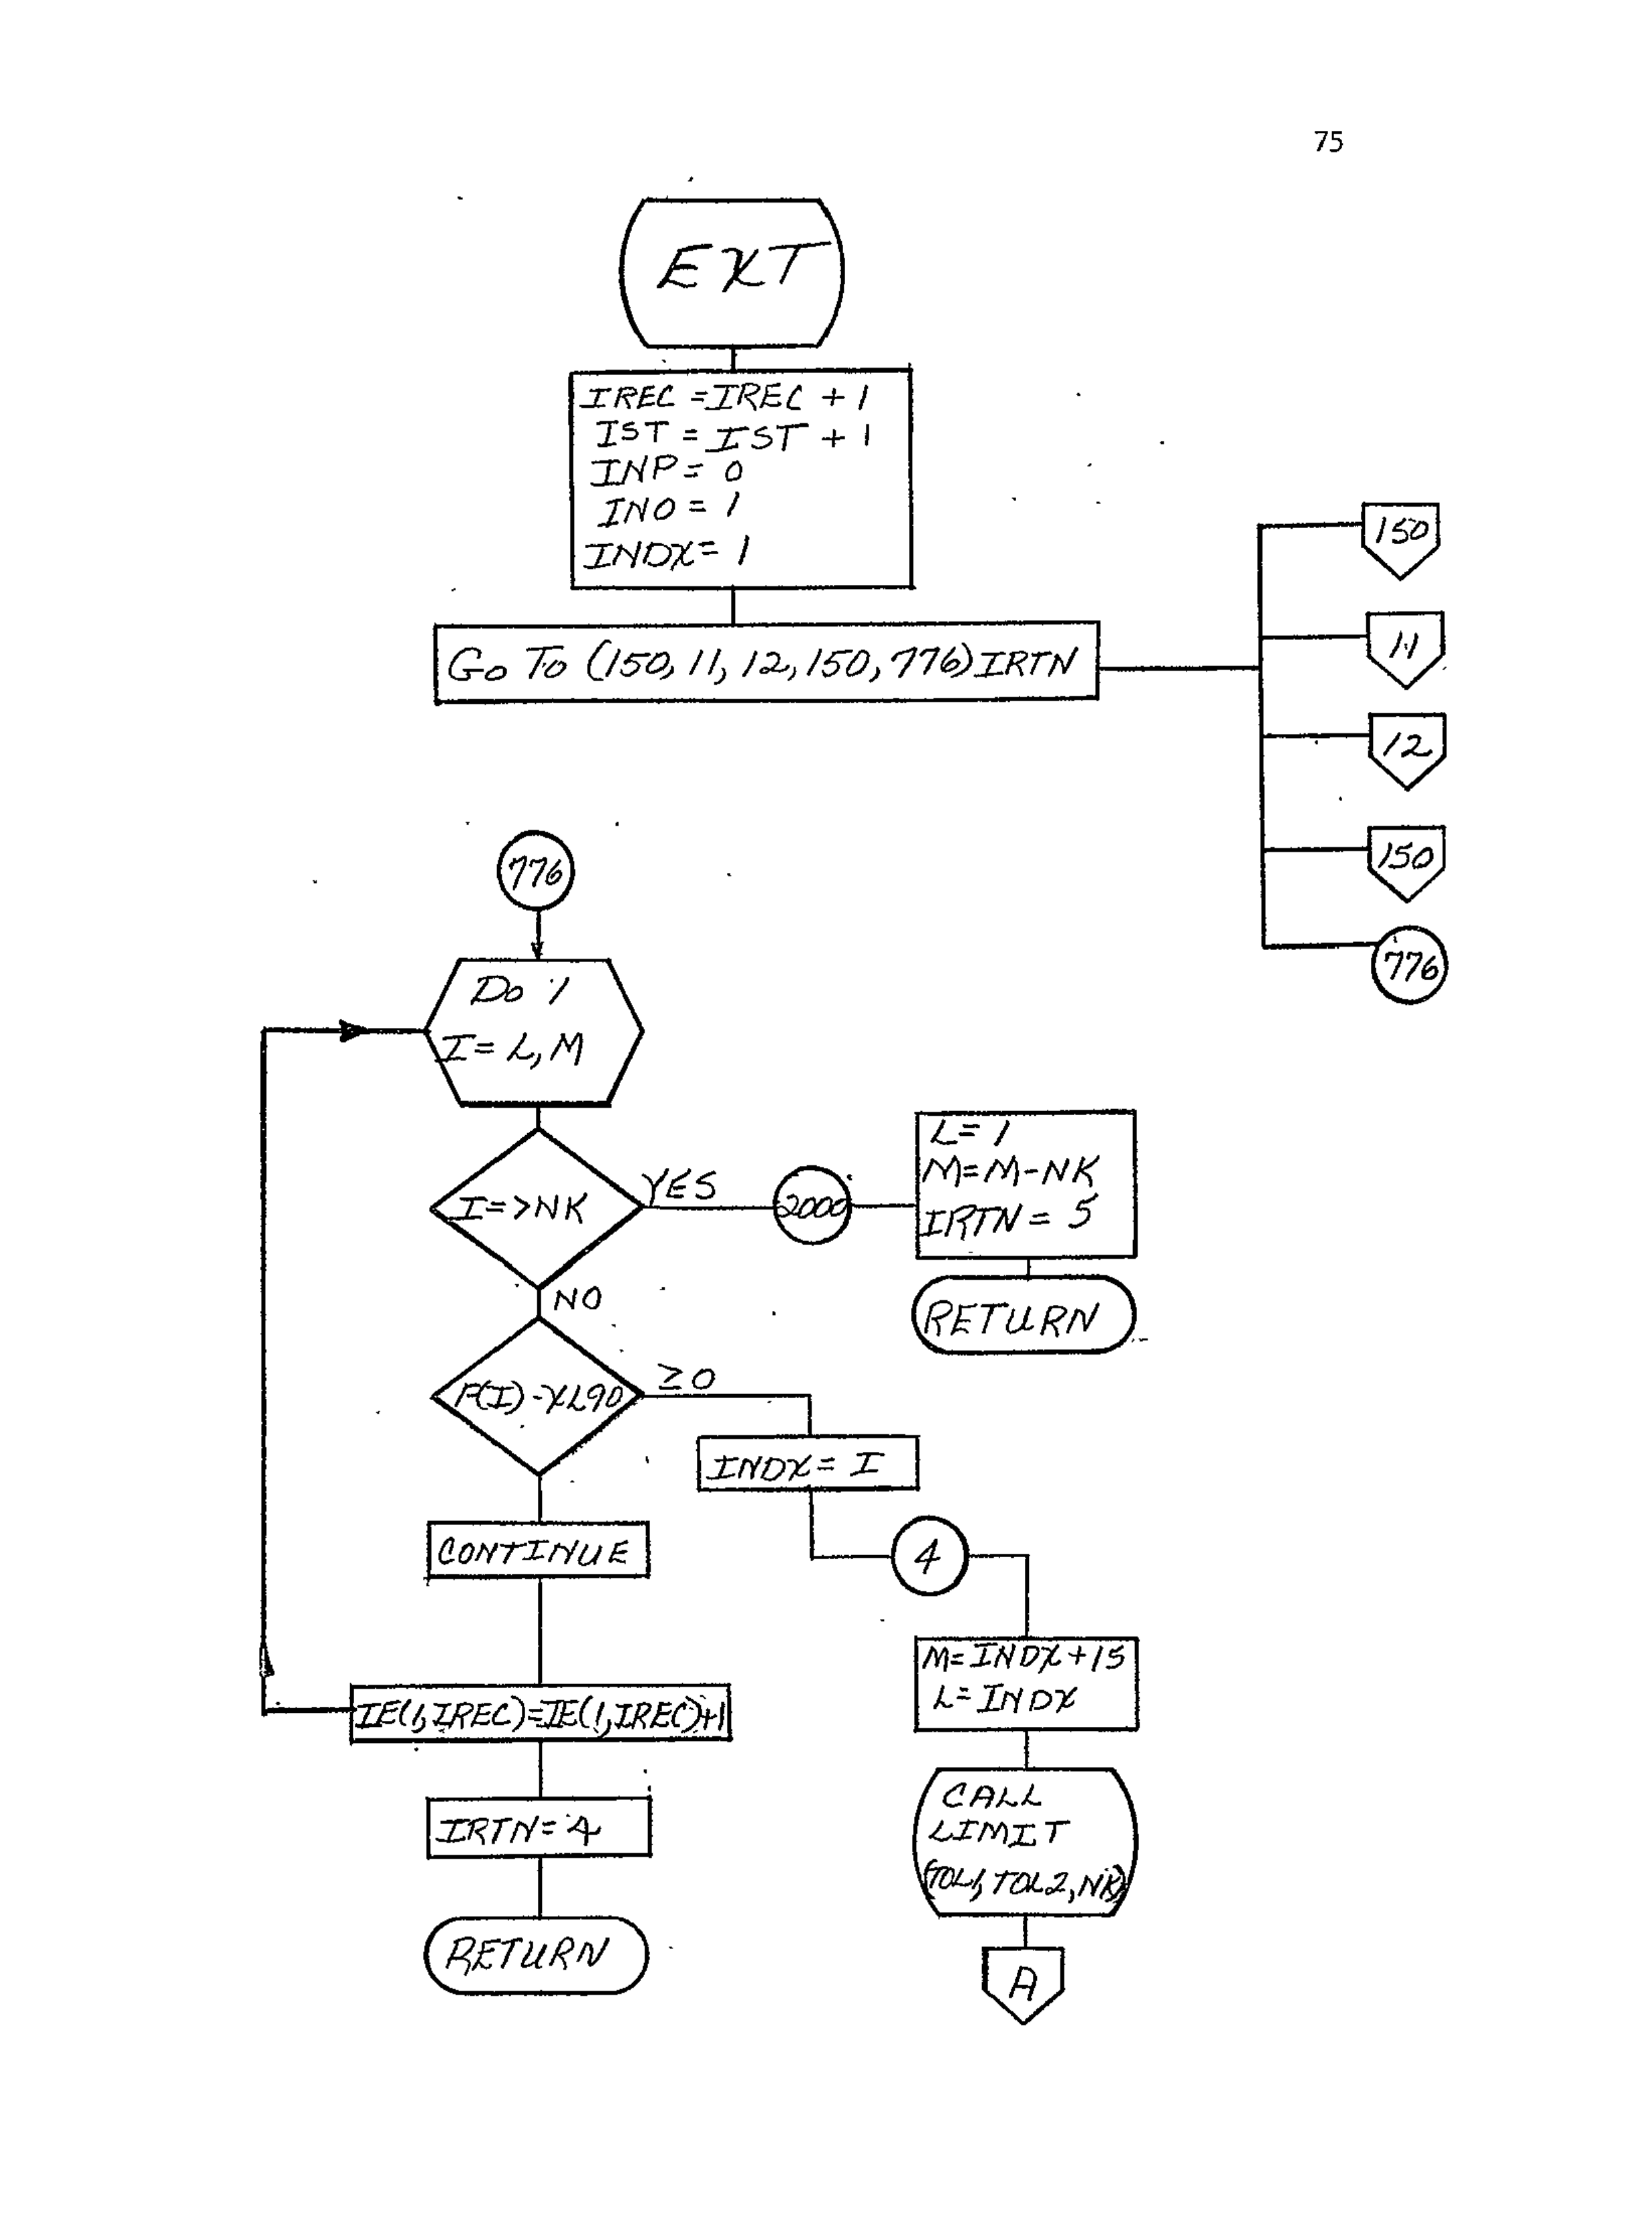 75
EXT
IREC = IREC + 1
IST = IST + 1
INP = 0
INO = 1
INDX = 1
Go To (150, 11, 12, 150, 776) IRTN
150
11
12
150
776
776
Do 1
I = L, M
I = > NK
YES
2000
L = 1
M = M - NK
IRTN = 5
RETURN
NO
F(I) - XL90
≥ 0
INDX = I
4
CONTINUE
M = INDX + 15
L = INDX
IE(1, IREC) = IE(1, IREC) + 1
IRTN = 4
RETURN
CALL
LIMIT
(TOL1, TOL2, NK)
A